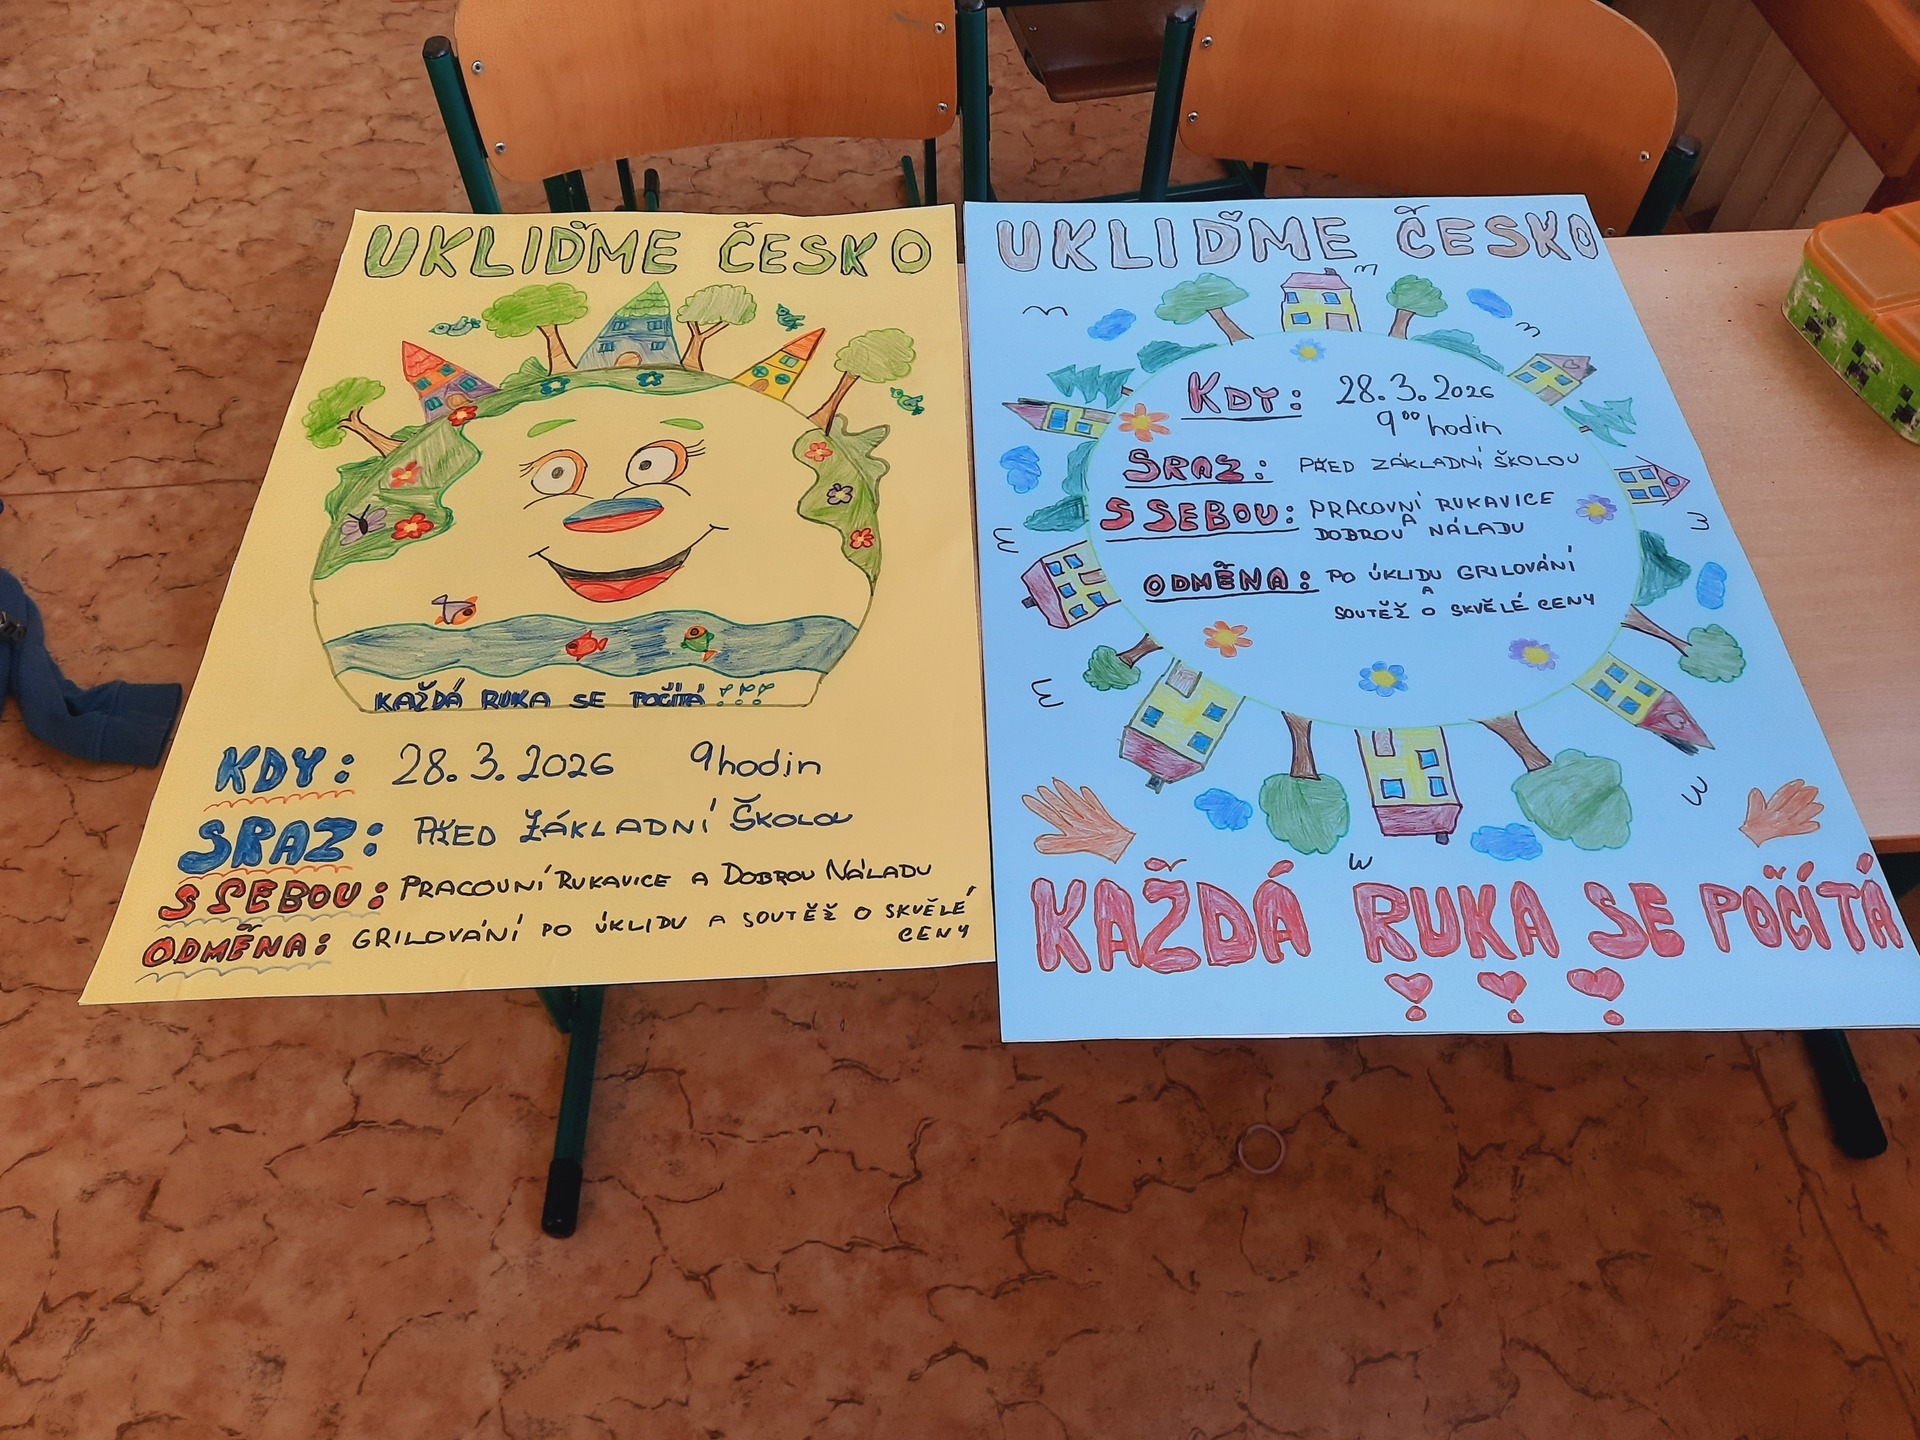 UKLIĎME ČESKO
KAŽDÁ RUKA SE POČÍTÁ!!!
KDY: 28.3.2026 9hodin
SRAZ: PŘED ZÁKLADNÍ ŠKOLOU
S SEBOU: PRACOVNÍ RUKAVICE A DOBROU NÁLADU
ODMĚNA: GRILOVÁNÍ PO ÚKLIDU A SOUTĚŽ O SKVĚLÉ
CENY
UKLIĎME ČESKO
KDY: 28.3.2026
9⁰⁰ hodin
SRAZ: PŘED ZÁKLADNÍ ŠKOLOU
S SEBOU: PRACOVNÍ RUKAVICE
A
DOBROU NÁLADU
ODMĚNA: PO ÚKLIDU GRILOVÁNÍ
A
SOUTĚŽ O SKVĚLÉ CENY
KAŽDÁ RUKA SE POČÍTÁ
!!!